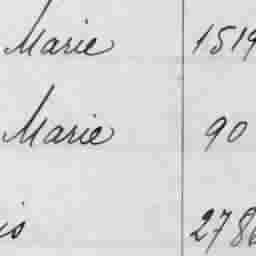 Marie 1519
Marie 90
is 278